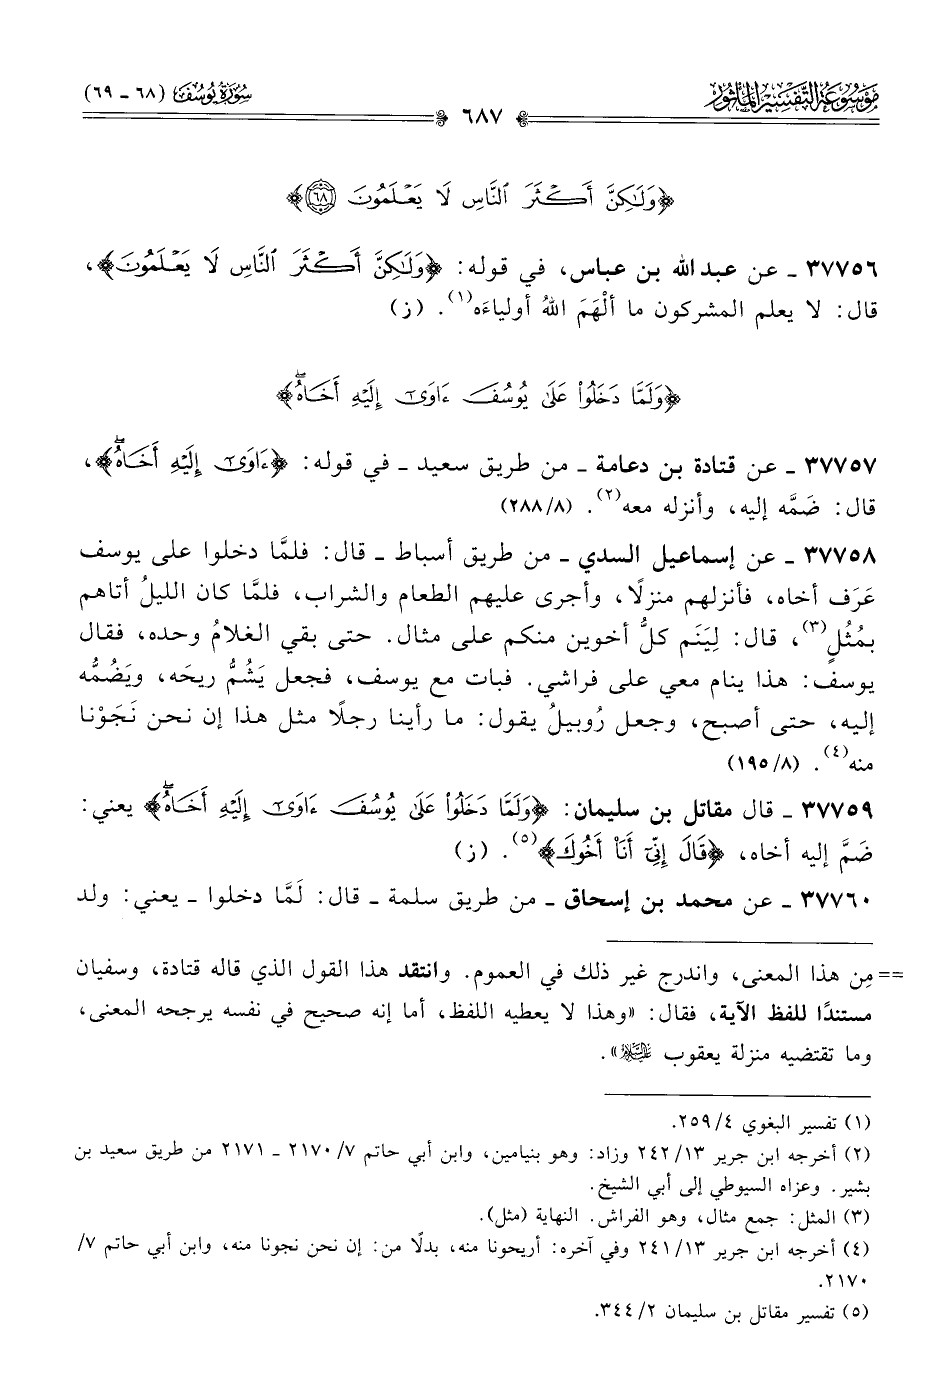 موسوعة التفسير المأثور
سورة يوسف (٦٨ - ٦٩)
٦٨٧
﴿وَلَٰكِنَّ أَكْثَرَ ٱلنَّاسِ لَا يَعْلَمُونَ ٦٨﴾
٣٧٧٥٦ ـ عن عبد الله بن عباس، في قوله: ﴿وَلَٰكِنَّ أَكْثَرَ ٱلنَّاسِ لَا يَعْلَمُونَ﴾،
قال: لا يعلم المشركون ما ألْهَمَ اللهُ أولياءَه(١). (ز)
﴿وَلَمَّا دَخَلُوا۟ عَلَىٰ يُوسُفَ ءَاوَىٰٓ إِلَيْهِ أَخَاهُ ۖ﴾
٣٧٧٥٧ ـ عن قتادة بن دعامة ـ من طريق سعيد ـ في قوله: ﴿ءَاوَىٰٓ إِلَيْهِ أَخَاهُ ۖ﴾،
قال: ضَمَّه إليه، وأنزله معه(٢). (٢٨٨/٨)
٣٧٧٥٨ ـ عن إسماعيل السدي ـ من طريق أسباط ـ قال: فلمَّا دخلوا على يوسف
عَرَف أخاه، فأنزلهم منزلًا، وأجرى عليهم الطعام والشراب، فلمَّا كان الليلُ أتاهم
بمُثُلٍ(٣)، قال: لِيَنَم كلُّ أخوين منكم على مثال. حتى بقي الغلامُ وحده، فقال
يوسف: هذا ينام معي على فراشي. فبات مع يوسف، فجعل يَشُمُّ ريحَه، ويَضُمُّه
إليه، حتى أصبح، وجعل رُوبيلُ يقول: ما رأينا رجلًا مثل هذا إن نحن نَجَوْنا
منه(٤). (١٩٥/٨)
٣٧٧٥٩ ـ قال مقاتل بن سليمان: ﴿وَلَمَّا دَخَلُوا۟ عَلَىٰ يُوسُفَ ءَاوَىٰٓ إِلَيْهِ أَخَاهُ ۖ﴾ يعني:
ضَمَّ إليه أخاه، ﴿قَالَ إِنِّىٓ أَنَا۠ أَخُوكَ﴾(٥). (ز)
٣٧٧٦٠ ـ عن محمد بن إسحاق ـ من طريق سلمة ـ قال: لَمَّا دخلوا ـ يعني: ولد
== مِن هذا المعنى، واندرج غير ذلك في العموم. وانتقد هذا القول الذي قاله قتادة، وسفيان
مستندًا للفظ الآية، فقال: «وهذا لا يعطيه اللفظ، أما إنه صحيح في نفسه يرجحه المعنى،
وما تقتضيه منزلة يعقوب عليه السلام».
(١) تفسير البغوي ٢٥٩/٤.
(٢) أخرجه ابن جرير ٢٤٢/١٣ وزاد: وهو بنيامين، وابن أبي حاتم ٢١٧٠/٧ ـ ٢١٧١ من طريق سعيد بن
بشير. وعزاه السيوطي إلى أبي الشيخ.
(٣) المثل: جمع مثال، وهو الفراش. النهاية (مثل).
(٤) أخرجه ابن جرير ٢٤١/١٣ وفي آخره: أريحونا منه، بدلًا من: إن نحن نجونا منه، وابن أبي حاتم ٧/
٢١٧٠.
(٥) تفسير مقاتل بن سليمان ٣٤٤/٢.